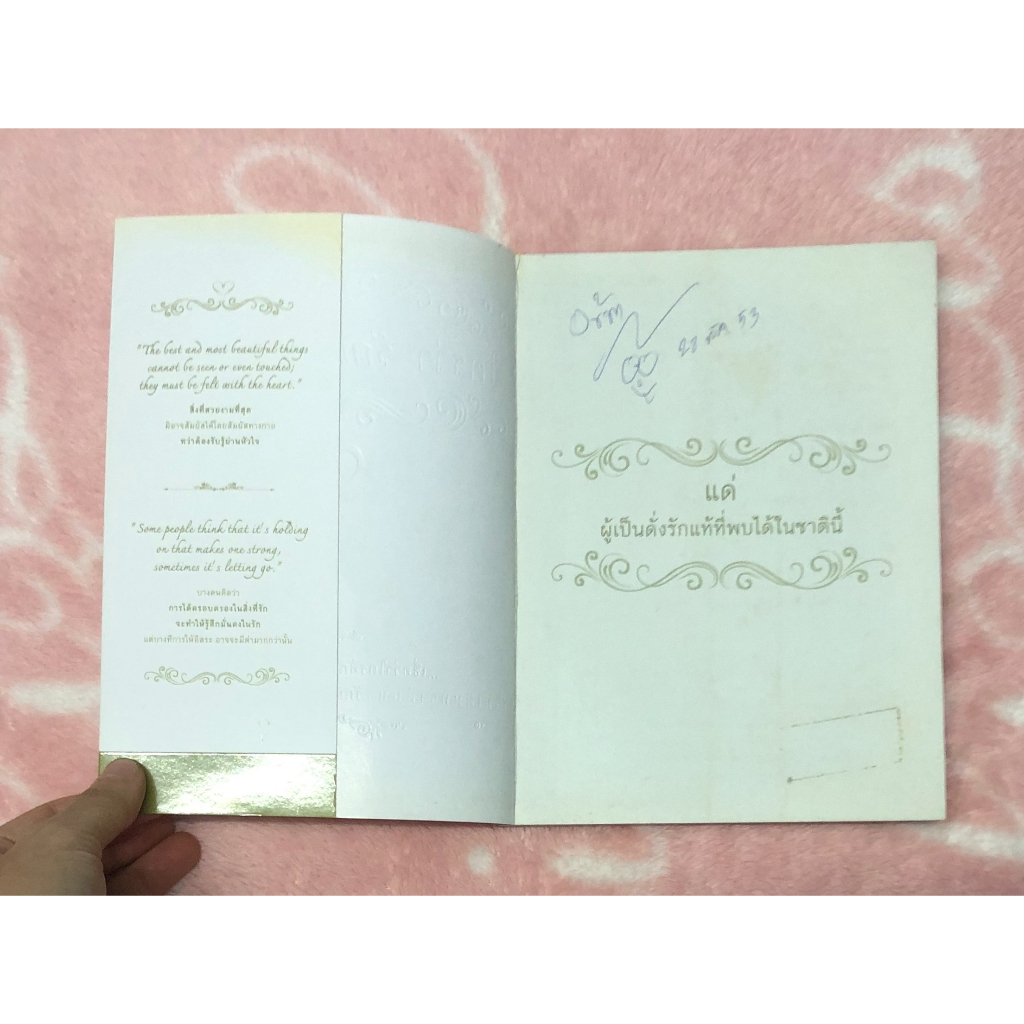 "The best and most beautiful things
cannot be seen or even touched;
they must be felt with the heart."
สิ่งที่สวยงามที่สุด
มิอาจสัมผัสได้โดยสัมผัสทางกาย
ทว่าต้องรับรู้ผ่านหัวใจ
"Some people think that it's holding
on that makes one strong,
sometimes it's letting go."
บางคนคิดว่า
การได้ครอบครองในสิ่งที่รัก
จะทำให้รู้สึกมั่นคงในรัก
แต่บางทีการให้อิสระ อาจจะมีค่ามากกว่านั้น
53
แด่
ผู้เป็นดั่งรักแท้ที่พบได้ในชาตินี้